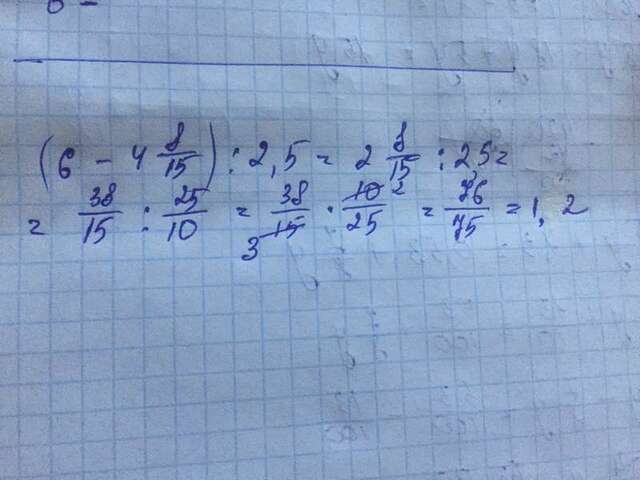 (6 - 4 8/15) : 2,5 = 2 8/15 : 25 =
= 38/15 : 25/10 = 38/15 3 · 10 2/25 = 76/75 = 1,2